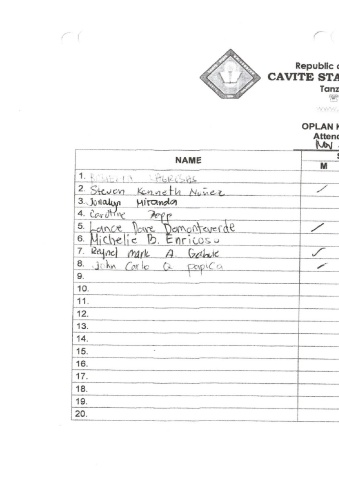 Republic
CAVITE STA
Tanz
OPLAN K
Attend
Nov
NAME
M
1.
2. Steven Kenneth Nuñez
3. Jonalyn Miranda
4. Caroline
5. Lance Dave Damonteverde
6. Michelle B. Enricoso
7. Reynel Mark A.
8. John Carlo Q. Papica
9.
10.
11.
12.
13.
14.
15.
16.
17.
18.
19.
20.